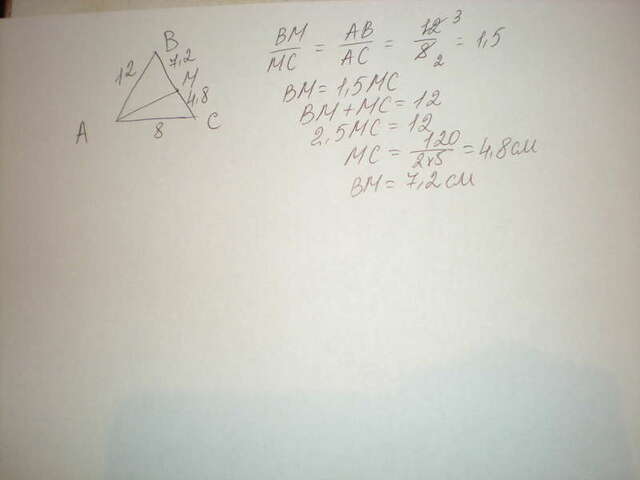 B
12
7,2
M
4,8
A
8
C
BM/MC = AB/AC = 12 3/8 2 = 1,5
BM = 1,5MC
BM + MC = 12
2,5MC = 12
MC = 120/2x5 = 4,8 см
BM = 7,2 см